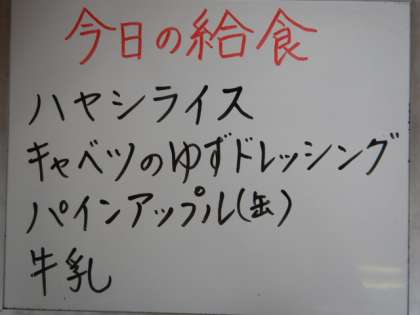 今日の給食
ハヤシライス
キャベツのゆずドレッシング
パインアップル(缶)
牛乳